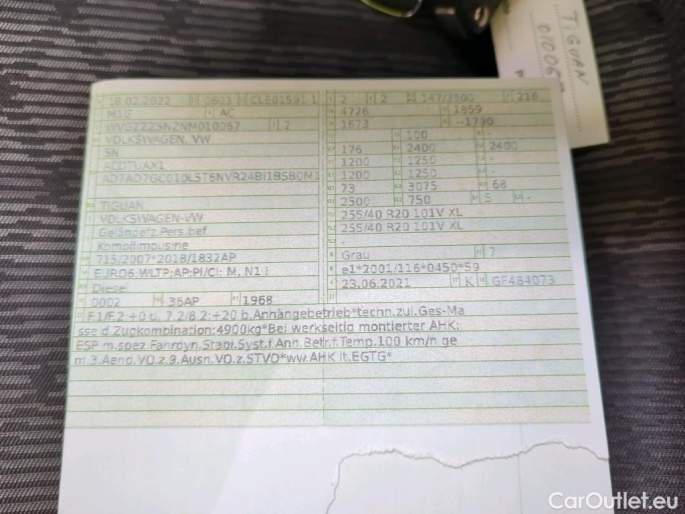 TIGUAN
18.02.2022 0603 CLE01591 1 2 2 147/3500 216
M1G AC 4726 1859
2 1673 -1730
VOLKSWAGEN, VW 100 -
5N 176 2400 2400
1200 1250 -
1200 1250 -
73 3075 68
TIGUAN 2500 750 5 -
VOLKSWAGEN-VW 255/40 R20 101V XL
Geländefz.Pers.bef 255/40 R20 101V XL
Kombilimousine -
715/2007*2018/1832AP Grau 7
EURO6,WLTP;AP;PI/CI; M, N1 I e1*2001/116*0450*59
Diesel 23.06.2021 K GF484073
0002 36AP 1968
F.1/F.2:+0 u. 7.2/8.2:+20 b.Anhängebetrieb*techn.zul.Ges-Ma
sse d.Zugkombination:4900kg*Bei werkseitig montierter AHK:
ESP m.spez.Fahrdyn.Stabi.Syst.f.Anh.Betr.f.Temp.100 km/h ge
m.3.Aend.VO.z.9.Ausn.VO.z.STVO*ww.AHK lt.EGTG*
CarOutlet.eu